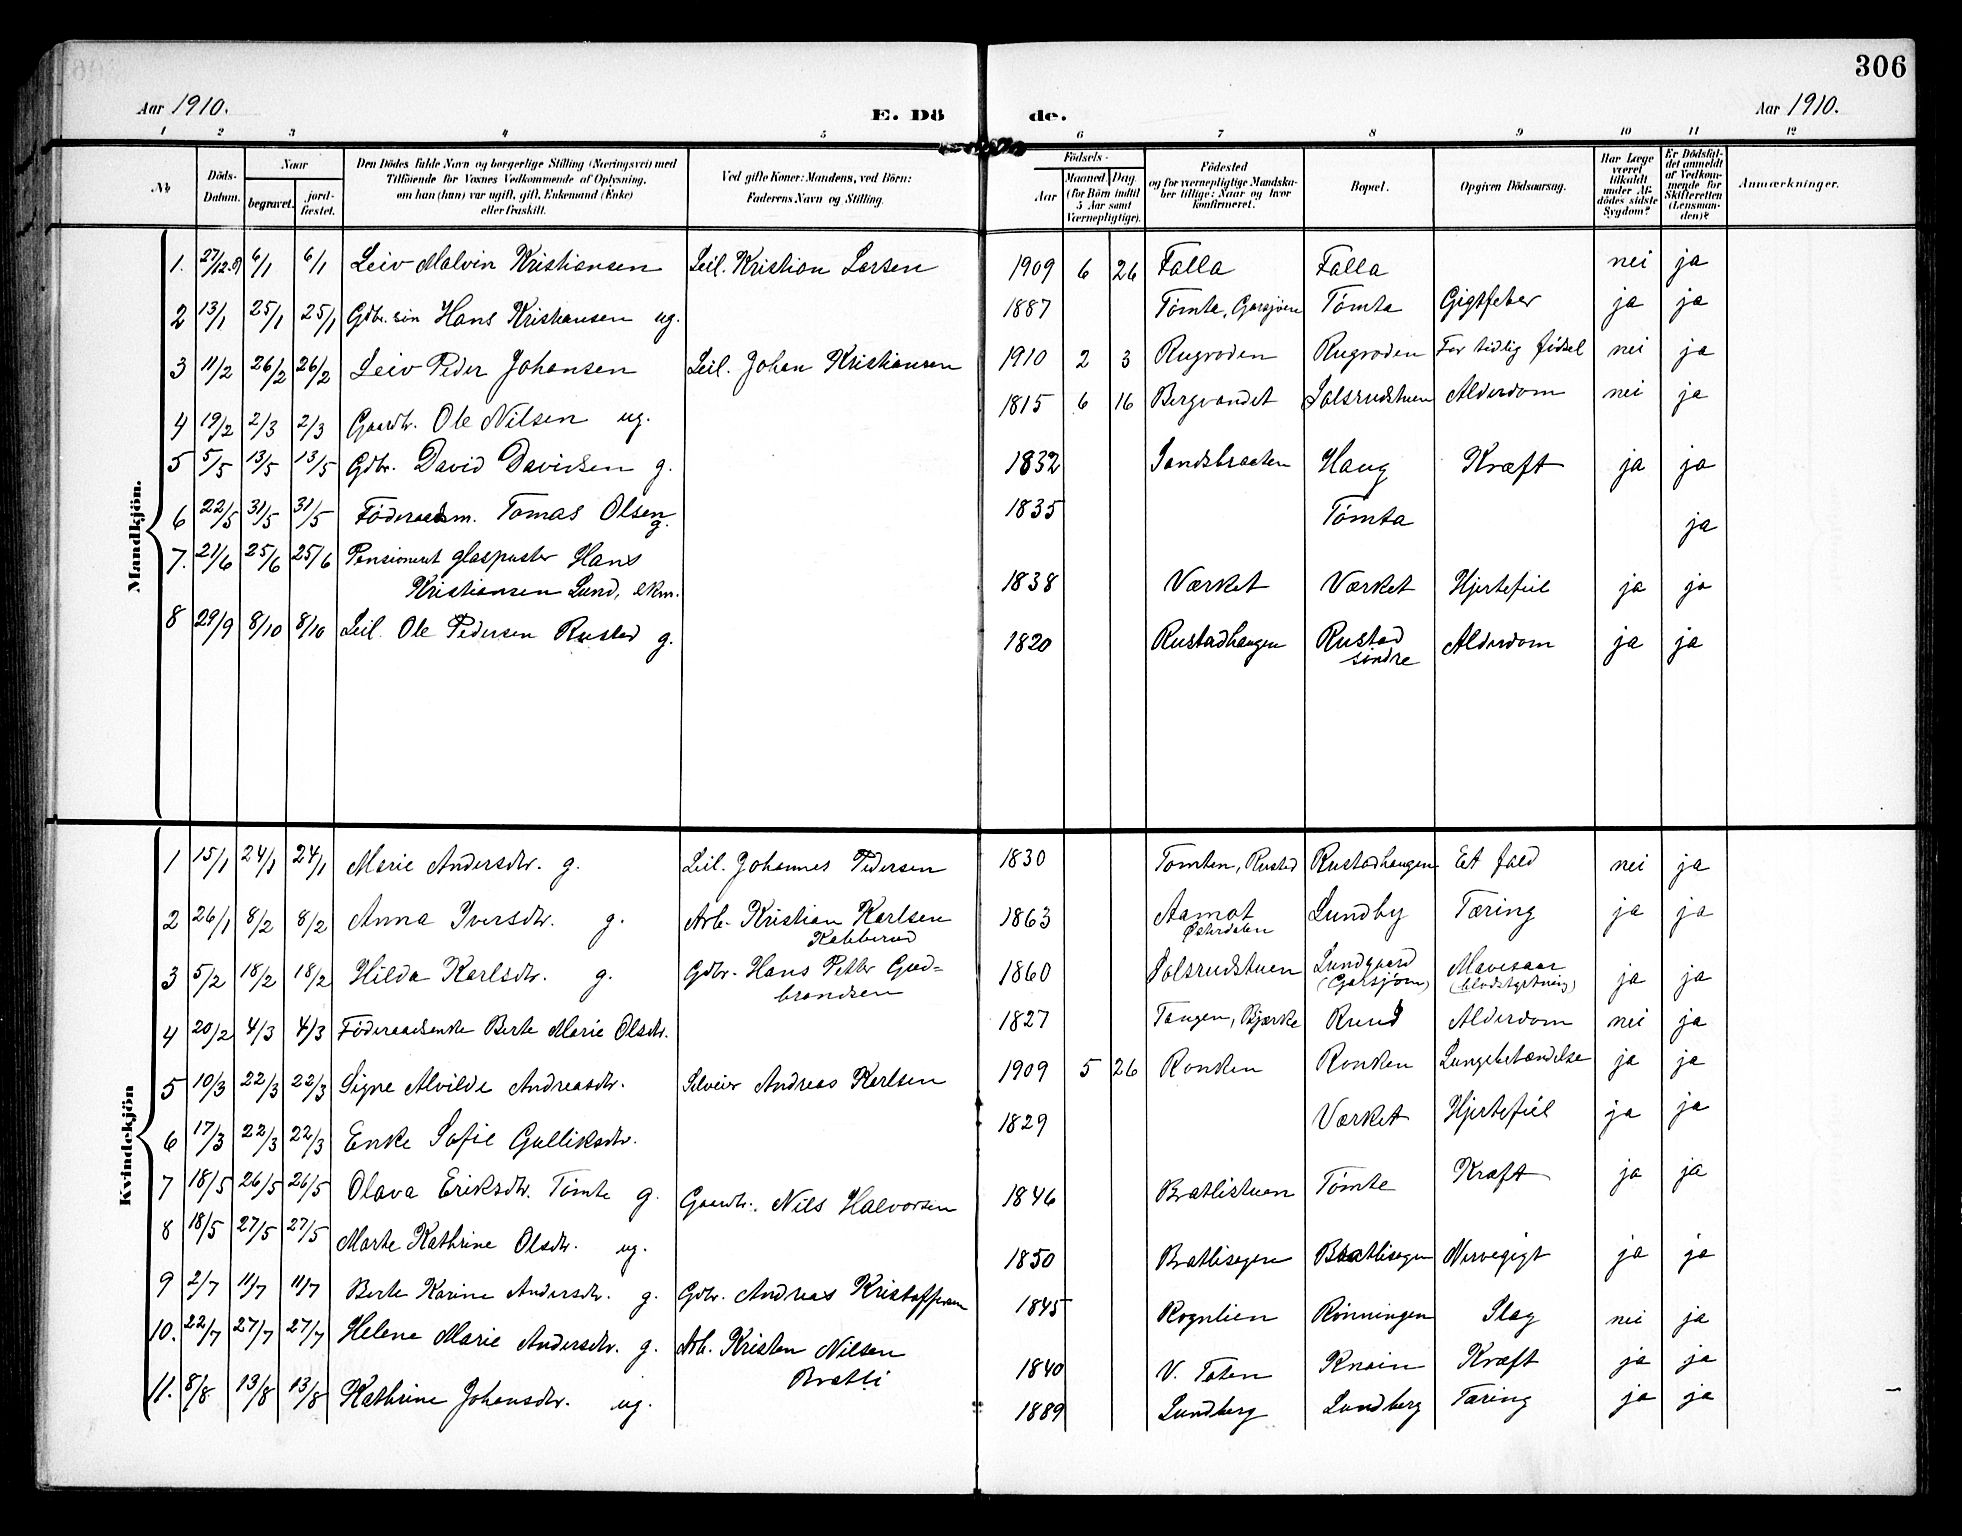 306
Aar 1910. E. Dö de. Aar 1910.
1 2 3 4 5 6 7 8 9 10 11 12
№ Döds-Datum. Naar begravet. jordfæstet. Den Dödes fulde Navn og borgerlige Stilling (Næringsvei) med Tilföiende for Voxnes Vedkommende af Oplysning, om han (hun) var ugift, gift, Enkemand (Enke) eller fraskilt. Ved gifte Koner: Mandens, ved Börn: Faderens Navn og Stilling. Födsels- Aar Maaned Dag (for Börn indtil 5 Aar samt Værnepligtige). Födested og for værnepligtige Mandskaber tillige: Naar og hvor konfirmeret. Bopæl. Opgiven Dödsaarsag. Har Læge været tilkaldt under Afdödes sidste Sygdom? Er Dödsfaldet anmeldt af Vedkommende for Skifteretten (Lensmanden)? Anmærkninger.
Mandkjön.
1. 27/12.09 6/1 6/1 Leiv Malvin Kristiansen Leil. Kristian Larsen 1909 6 26 Falla Falla nei ja
2 13/1 25/1 25/1 Gdbr. søn Hans Kristiansen ug. 1887 Tømta, Garsjøen Tømta Gigtfeber ja ja
3 11/2 26/2 26/2 Leiv Peder Johansen Leil. Johan Kristiansen 1910 2 3 Rugroden Rugroden For tidlig fødsel nei ja
4 19/2 2/3 2/3 Gaardbr. Ole Nilsen ug. 1815 6 16 Bergvandet Solsrudstuen Alderdom nei ja
5 5/5 13/5 13/5 Gdbr. David Davidsen g. 1832 Sandsbraaten Haug Kræft ja ja
6 22/5 31/5 31/5 Føderaadsm. Tomas Olsen g. 1835 Tømta ja
7. 21/6 25/6 25/6 Pensioneret glaspuster Hans
Kristiansen Lund, ekm. 1838 Værket Værket Hjertefeil ja ja
8 29/9 8/10 8/10 Leil. Ole Pedersen Rustad g. 1820 Rustadhaugen Rustad søndre Alderdom ja ja
Kvindekjön
1 15/1 24/1 24/1 Marie Andersdtr. g. Leil. Johannes Pedersen 1830 Tomten, Rustad Rustadhaugen Et fald nei ja
2 26/1 8/2 8/2 Anna Iversdtr. g. Arb. Kristian Karlsen Kabberud 1863 Aamot Østerdalen Lundby Tæring ja ja
3 5/2 18/2 18/2 Hilda Karlsdtr. g. Gdbr. Hans Petter Gudbrandsen 1860 Solsrudstuen Lundgaard (Garsjøen) Mavesaar (blodstyrtning) ja ja
4 20/2 4/3 4/3 Føderaadsenke Berte Marie Olsdtr. 1827 Tangen, Bjærke Ruud Alderdom nei ja
5 10/3 22/3 22/3 Signe Alvilde Andreasdtr. Selveier Andreas Karlsen 1909 5 26 Ronken Ronken Lungebetændelse ja ja
6 17/3 22/3 22/3 Enke Sofie Gulliksdtr. 1829 Værket Hjertefeil ja ja
7 18/5 26/5 26/5 Olava Eriksdtr. Tømte g. Gaardbr. Nils Halvorsen 1846 Bratlistuen Tømte Kræft ja ja
8 18/5 27/5 27/5 Marte Kathrine Olsdtr. ug. 1850 Bratlisegen Bratlisegen Nervegigt ja ja
9 2/7 11/7 11/7 Berte Karine Andersdtr. g. Gdbr. Andreas Kristoffersen 1845 Rognlien Rønningen Slag nei ja
10. 22/7 27/7 27/7 Helene Marie Andersdtr. g. Arb. Kristen Nilsen Bratli 1840 V. Toten Knain Kræft ja ja
11. 8/8 13/8 13/8 Kathrine Johansdtr. ug. 1889 Lundberg Lundberg Tæring ja ja